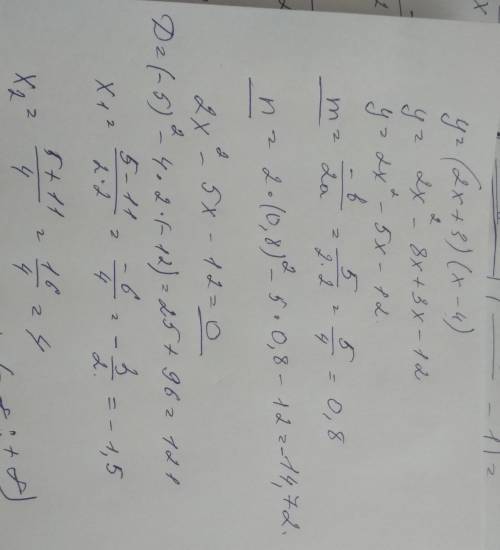 y = (2x+3)(x-4)
y = 2x² - 8x + 3x - 12
y = 2x² - 5x - 12.
m = -b/2a = 5/2·2 = 5/4 = 0,8
n = 2·(0,8)² - 5·0,8 - 12 = -14,72.
2x² - 5x - 12 = 0
D = (-5)² - 4·2·(-12) = 25 + 96 = 121
x₁ = 5-11/2·2 = -6/4 = -3/2 = -1,5
x₂ = 5+11/4 = 16/4 = 4